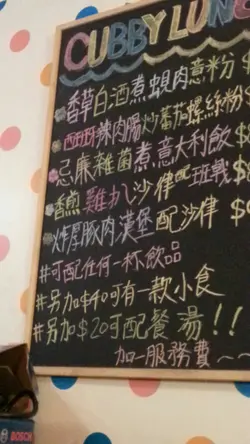 CUBBY LUN
香草白酒煮蜆肉意粉 $
西班牙辣肉腸炒蕃茄螺絲粉 $
忌廉雜菌煮意大利飯 $
香煎雞扒沙律配班戟 $
炸厚豚肉漢堡配沙律 $
#可配任何一杯飲品
#另加$40可有一款小食
#另加$20可配餐湯!!
加一服務費~~
BOSCH